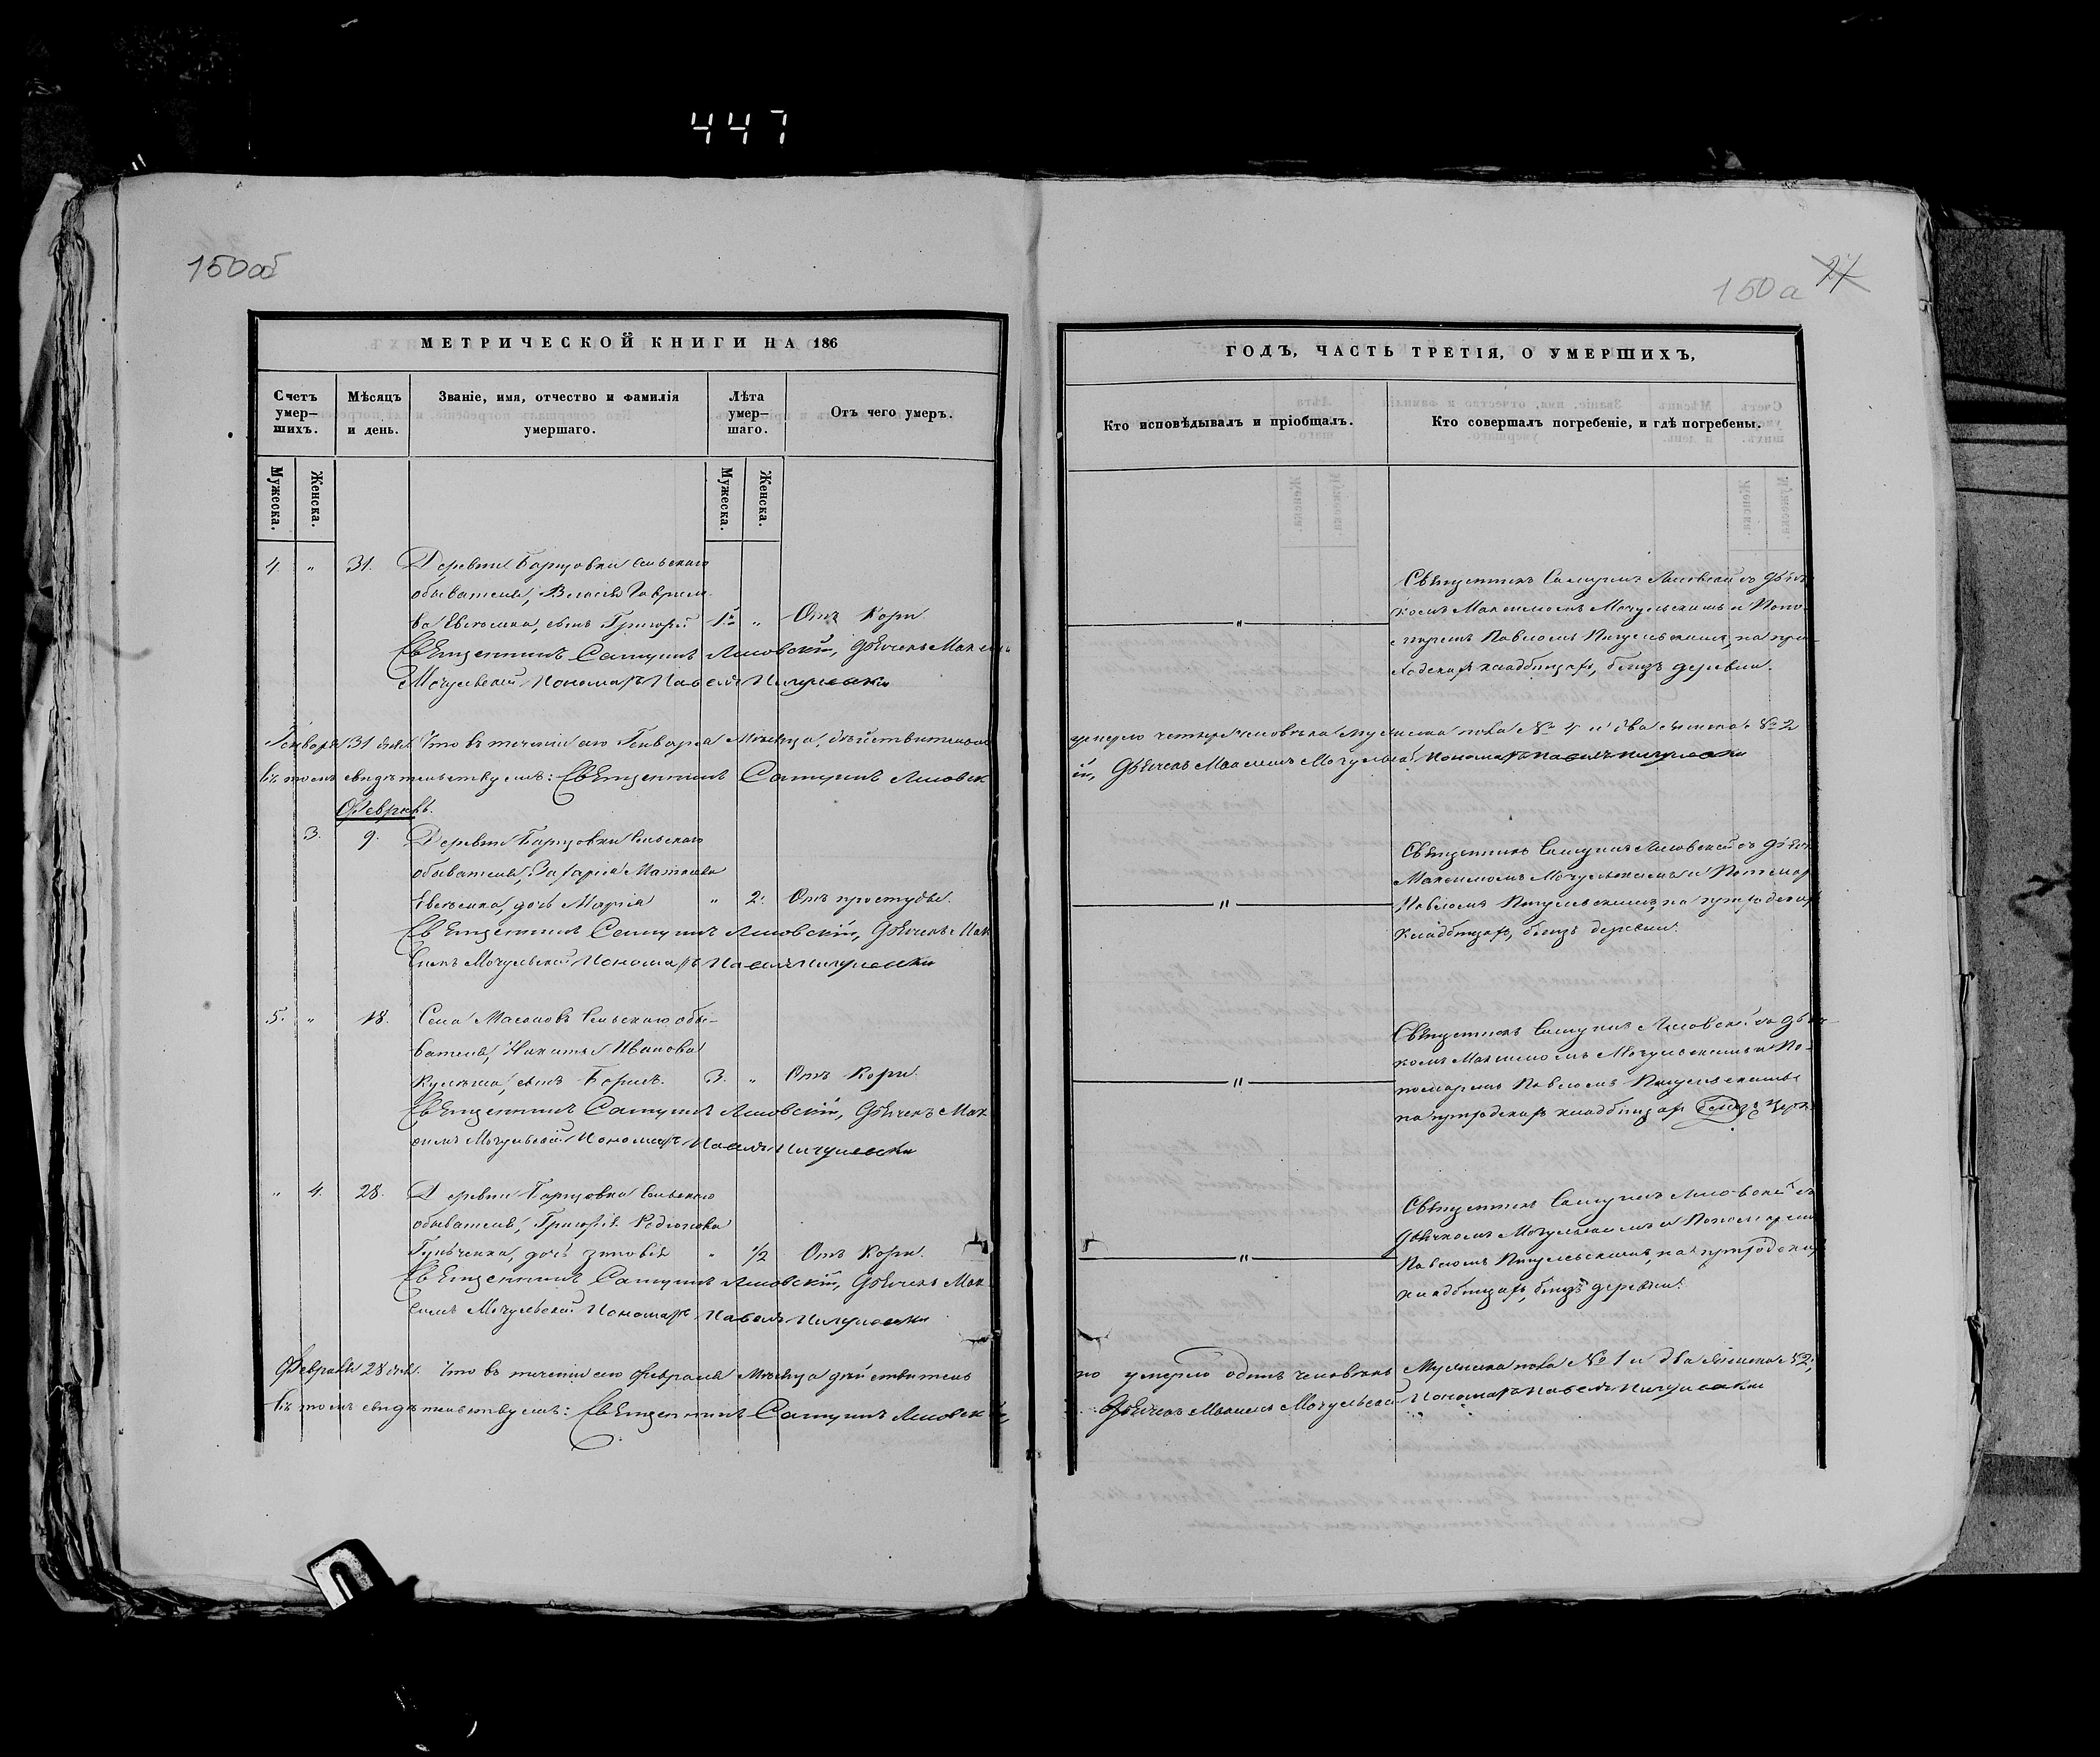 447
150об
МЕТРИЧЕСКОЙ КНИГИ НА 186
Счетъ умер—шихъ.
Мѣсяцъ и день.
Званіе, имя, отчество и фамилія умершаго.
Лѣта умер—шаго.
Отъ чего умеръ.
Мужеска.
Женска.
Мужеска.
Женска.
4 " 31. Деревни сельскаго
обывателя, Власія Гаврило
ва сынъ Григорій 1 " Отъ Кори.
Священникъ Самуилъ Лисовскій, Дьячекъ Макси
Мочульскій Пономарь Павелъ
Генваря 31 дня. Что въ теченіи сего Генваря Мѣсяца, дѣйствительно
въ томъ свидѣтельствуемъ: Священникъ Самуилъ Лисовск
Февраль.
3. 9. Деревни сельскаго
обывателя, Захарія Матвѣева
дочь Марія " 2. Отъ простуды.
Священникъ Самуилъ Лисовскій, Дьячекъ Мак
симъ Мочульскій Пономарь Павелъ
5. " 18. Села сельскаго обы—
вателя, Никиты Иванова
сынъ Борисъ. 3. " Отъ Кори.
Священникъ Самуилъ Лисовскій, Дьячекъ Мак
симъ Мочульскій Пономарь Павелъ
" 4. 28. Деревни сельскаго
обывателя, Григорія Родіонова
дочь Зиновія " 1/2 Отъ Кори.
Священникъ Самуилъ Лисовскій, Дьячекъ Мак
симъ Мочульскій Пономарь Павелъ
Февраля 28 дня. Что въ теченіи сего Февраля Мѣсяца дѣйствитель
въ томъ свидѣтельствуемъ: Священникъ Самуилъ Лисовск
150а
24
ГОДЪ, ЧАСТЬ ТРЕТІЯ, О УМЕРШИХЪ,
Кто исповѣдывалъ и пріобщалъ.
Кто совершалъ погребеніе, и гдѣ погребены.
Священникъ Самуилъ Лисовскій съ Дьяч
комъ Максимомъ Мочульскимъ и Поно
"
маремъ Павломъ на при—
ходскомъ кладбищѣ, близъ деревни.
умерло четыре человѣка мужеска пола № 4 и два женска № 2
ій, Дьячекъ Максимъ Мочульскій Пономарь Павелъ
Священникъ Самуилъ Лисовскій съ Дьяч
Максимомъ Мочульскимъ и Пономар
" Павломъ на приходском
кладбищѣ, близъ деревни.
Священникъ Самуилъ Лисовскій съ Дьяч
комъ Максимомъ Мочульскимъ и По—
" номаремъ Павломъ
на приходскомъ кладбищѣ близъ
Священникъ Самуилъ Лисовскій съ
Дьячкомъ Мочульскимъ и Пономаремъ
" Павломъ на приходском
кладбищѣ, близъ деревни.
но умерло одинъ человѣкъ Мужеска пола № 1 и два женска № 2,
Дьячекъ Максимъ Мочульскій Пономарь Павелъ